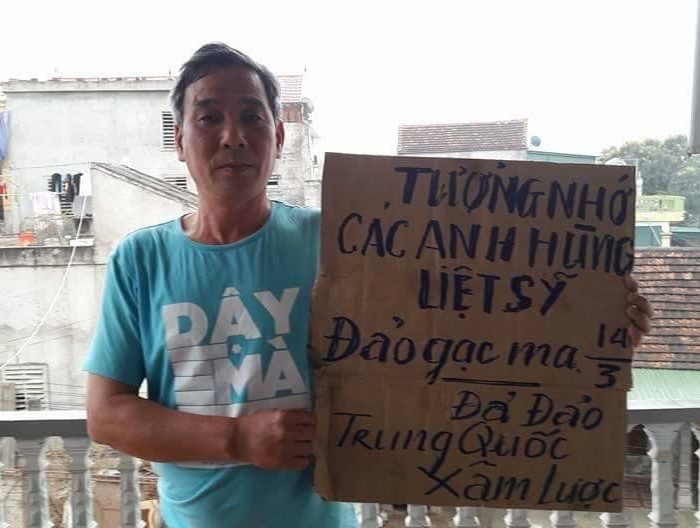 TƯỞNG NHỚ
CÁC ANH HÙNG
LIỆT SỸ
Đảo gạc ma. 14/3
Đả Đảo
Trung Quốc
Xâm Lược
DẬY
MÀ